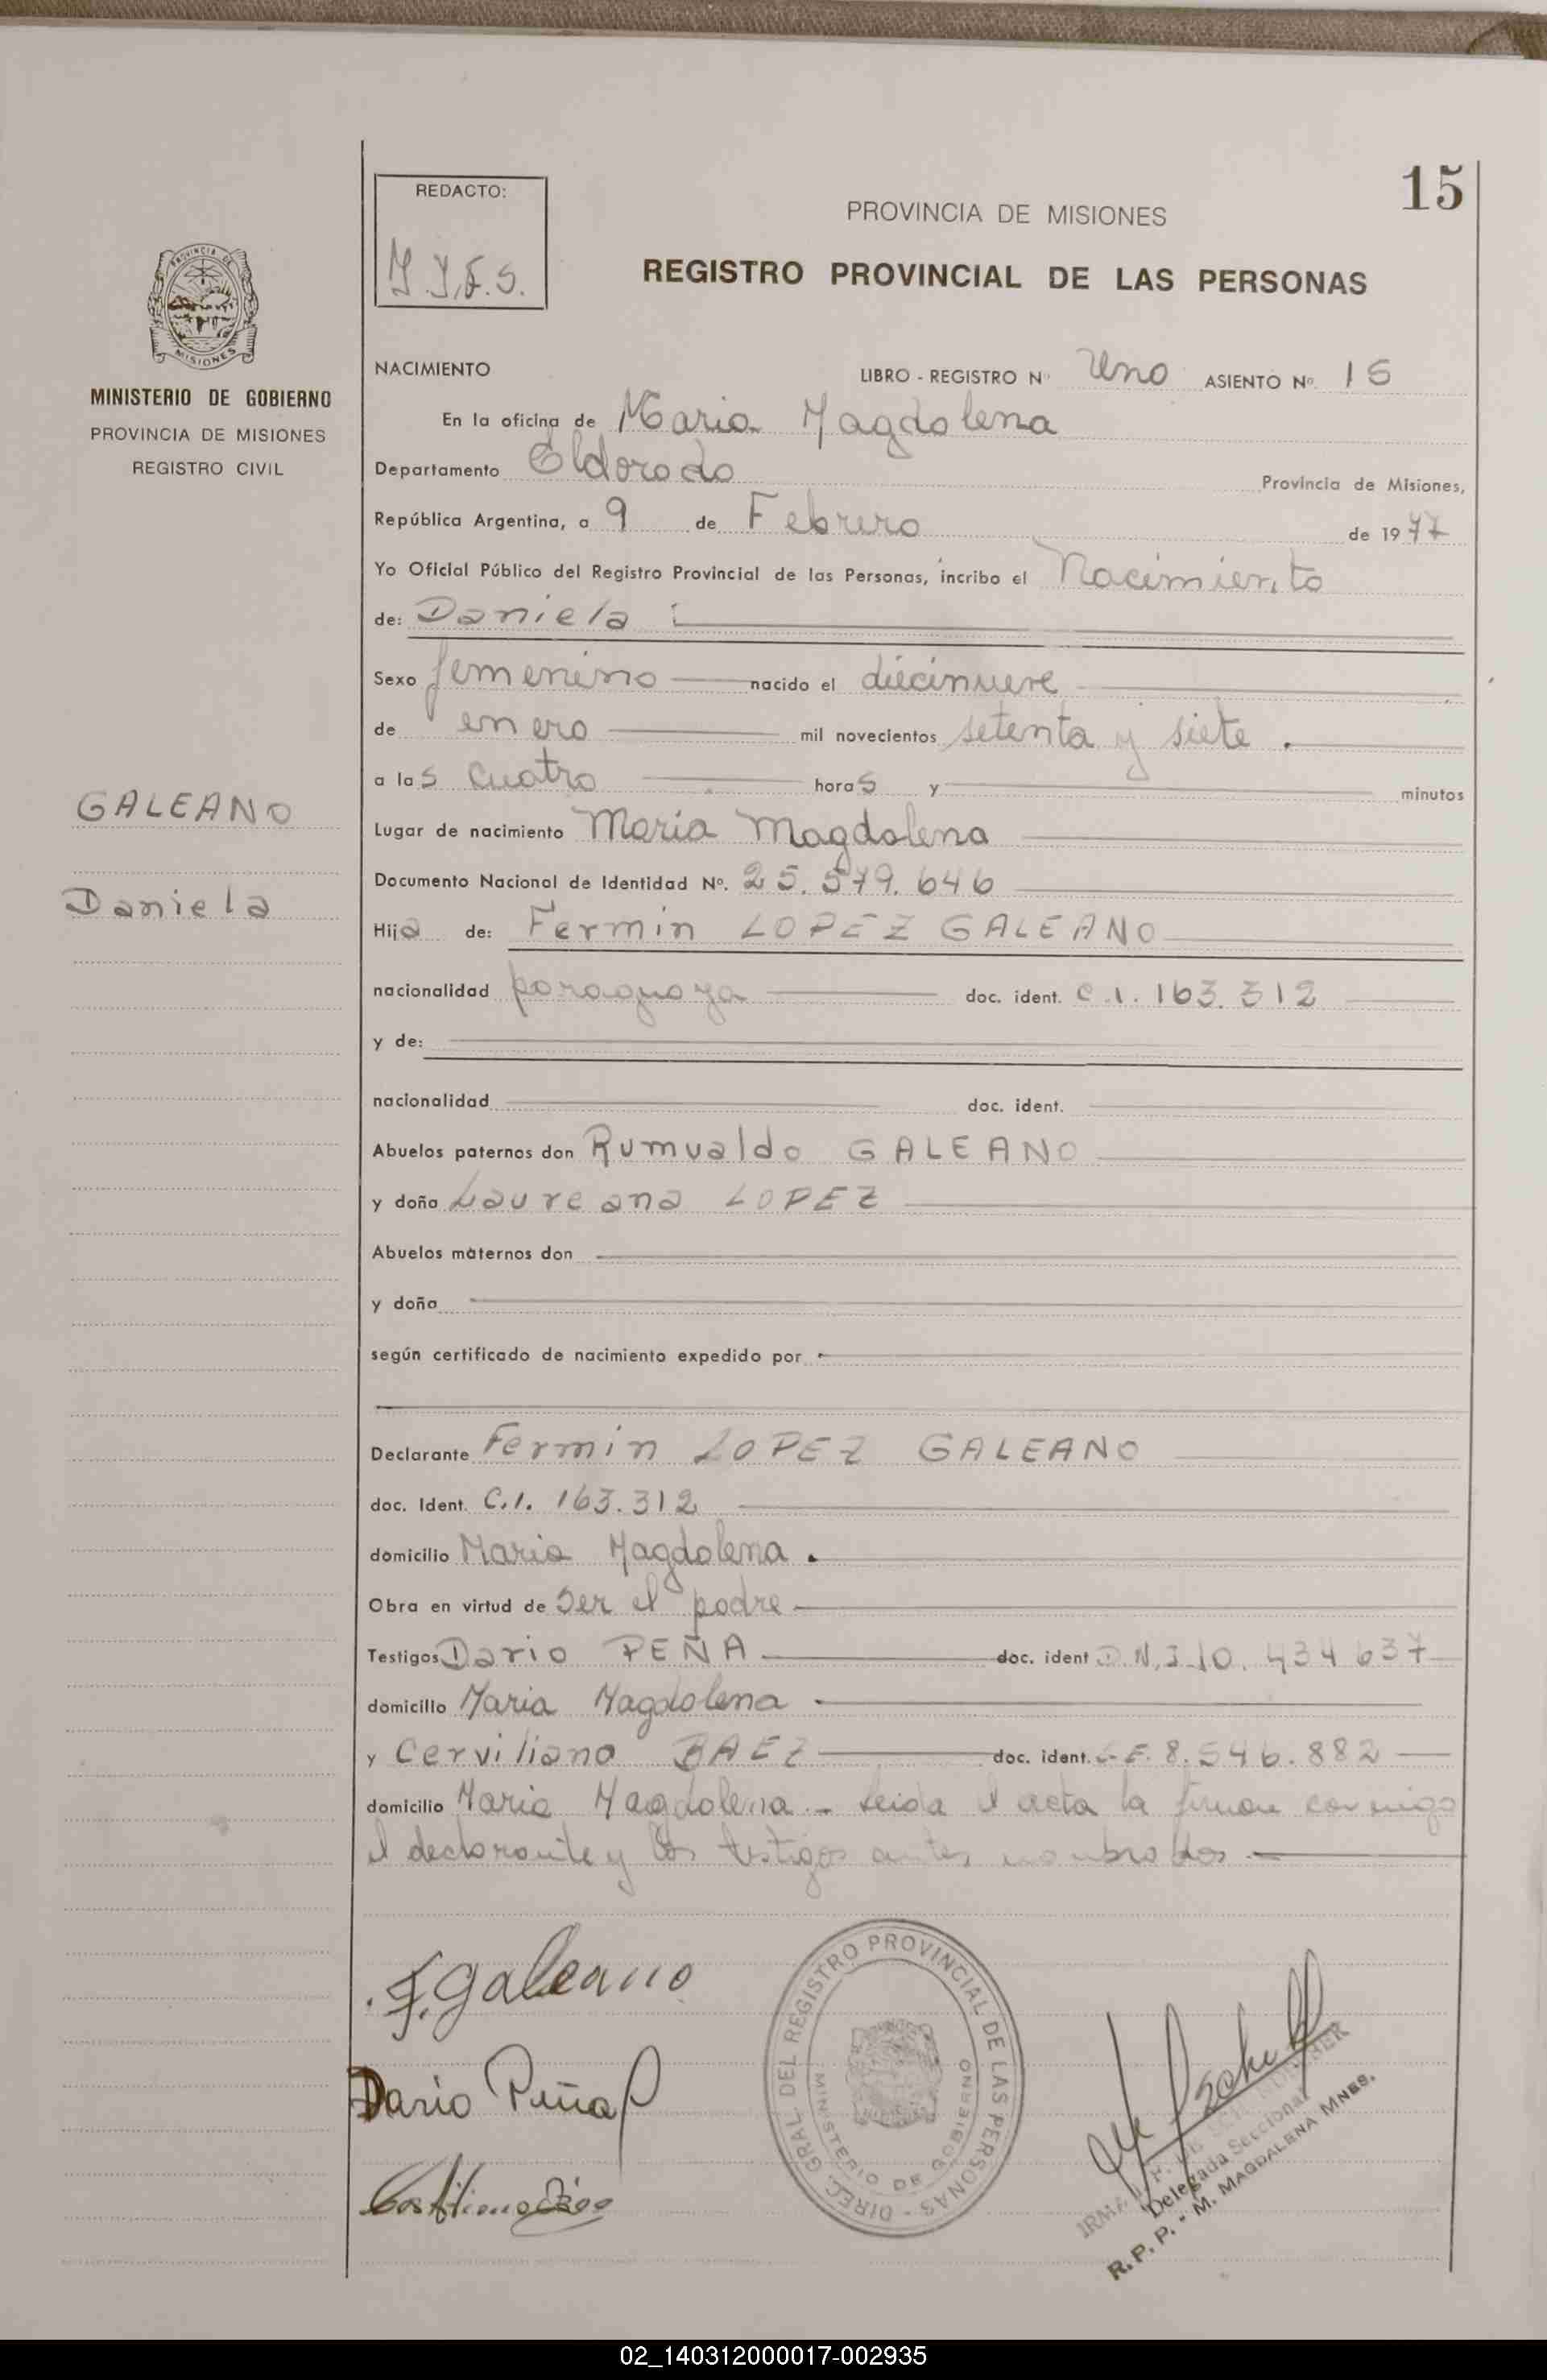 15
REDACTO:
PROVINCIA DE MISIONES
REGISTRO PROVINCIAL DE LAS PERSONAS
PROVINCIA DE
MISIONES
MINISTERIO DE GOBIERNO
PROVINCIA DE MISIONES
REGISTRO CIVIL
NACIMIENTO LIBRO - REGISTRO Nº Uno ASIENTO Nº 15
En la oficina de Maria Magdalena
Departamento Eldorado Provincia de Misiones,
República Argentina, a 9 de Febrero de 1977
Yo Oficial Público del Registro Provincial de las Personas, incribo el Nacimiento
de: Daniela
Sexo femenino nacido el diecinueve
de enero mil novecientos setenta y siete.
a las cuatro horas y minutos
GALEANO
Daniela
Lugar de nacimiento Maria Magdalena
Documento Nacional de Identidad Nº. 25.579.646
Hija de: Fermin LOPEZ GALEANO
nacionalidad paraguaya doc. ident. C.I. 163.312
y de:
nacionalidad doc. ident.
Abuelos paternos don Rumualdo GALEANO
y doña Laureana LOPEZ
Abuelos maternos don
y doña
según certificado de nacimiento expedido por
Declarante Fermin LOPEZ GALEANO
doc. Ident. C.I. 163.312
domicilio Maria Magdalena.
Obra en virtud de ser el padre
Testigos Dario PEÑA doc. ident D.N.I 10.434637
domicilio Maria Magdalena
y Cerviliano BAEZ doc. ident. 8.546.882
domicilio Maria Magdalena - Leida el acta la firman conmigo
el declarante y los testigos antes nombrados
F. Galeano
Dario Peña
DIREC. GRAL. DEL REGISTRO PROVINCIAL DE LAS PERSONAS -
MINISTERIO DE GOBIERNO
IRMA
Delegada Seccional
R. P. P. - M. MAGDALENA MNES.
02_140312000017-002935